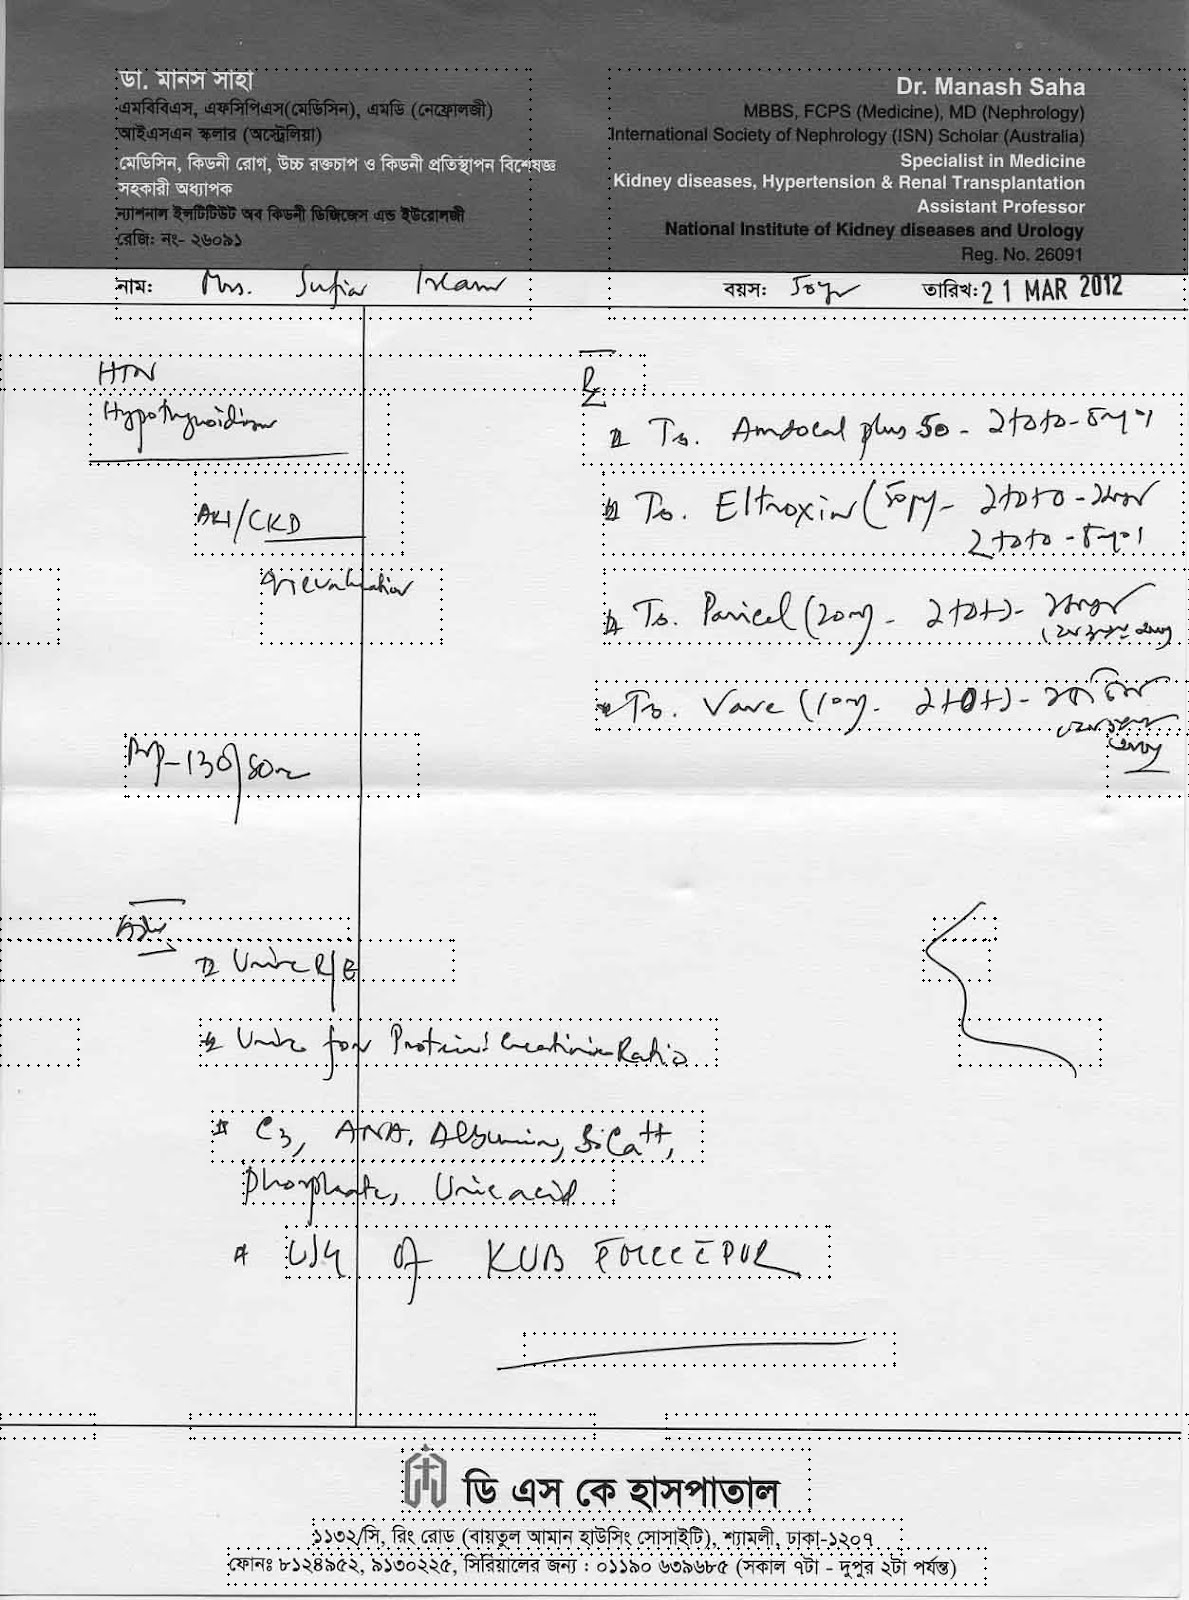 ডা. মানস সাহা
এমবিবিএস, এফসিপিএস(মেডিসিন), এমডি (নেফ্রোলজী)
আইএসএন স্কলার (অস্ট্রেলিয়া)
মেডিসিন, কিডনী রোগ, উচ্চ রক্তচাপ ও কিডনী প্রতিস্থাপন বিশেষজ্ঞ
সহকারী অধ্যাপক
ন্যাশনাল ইনস্টিটিউট অব কিডনী ডিজিজেস এন্ড ইউরোলজী
রেজি: নং- ২৬০৯১
Dr. Manash Saha
MBBS, FCPS (Medicine), MD (Nephrology)
International Society of Nephrology (ISN) Scholar (Australia)
Specialist in Medicine
Kidney diseases, Hypertension & Renal Transplantation
Assistant Professor
National Institute of Kidney diseases and Urology
Reg. No. 26091
নাম: Mrs. Sufia Islam বয়স: তারিখ: 21 MAR 2012
HTN
Hypothyroidism
AKI/CKD
BP-130/80
Urine R/E
Urine for Protein: Creatinine Ratio
C3, ANA, Albumin, S. Ca++,
Phosphate, Uric acid
USG of KUB
Rx
Tb. Amdocal plus 50 - ১+০+০ -
Tb. Eltroxin (50 - ১+০+০ -
১+০+০ -
Tb. Paricel (20mg - ১+০+১ -
Tb. (10mg - ১+০+১ -
ডি এস কে হাসপাতাল
১১৩২/সি, রিং রোড (বায়তুল আমান হাউসিং সোসাইটি), শ্যামলী, ঢাকা-১২০৭
ফোনঃ ৮১২৪৯৫২, ৯১৩০২২৫, সিরিয়ালের জন্য : ০১১৯০ ৬৩৯৬৮৫ (সকাল ৭টা - দুপুর ২টা পর্যন্ত)